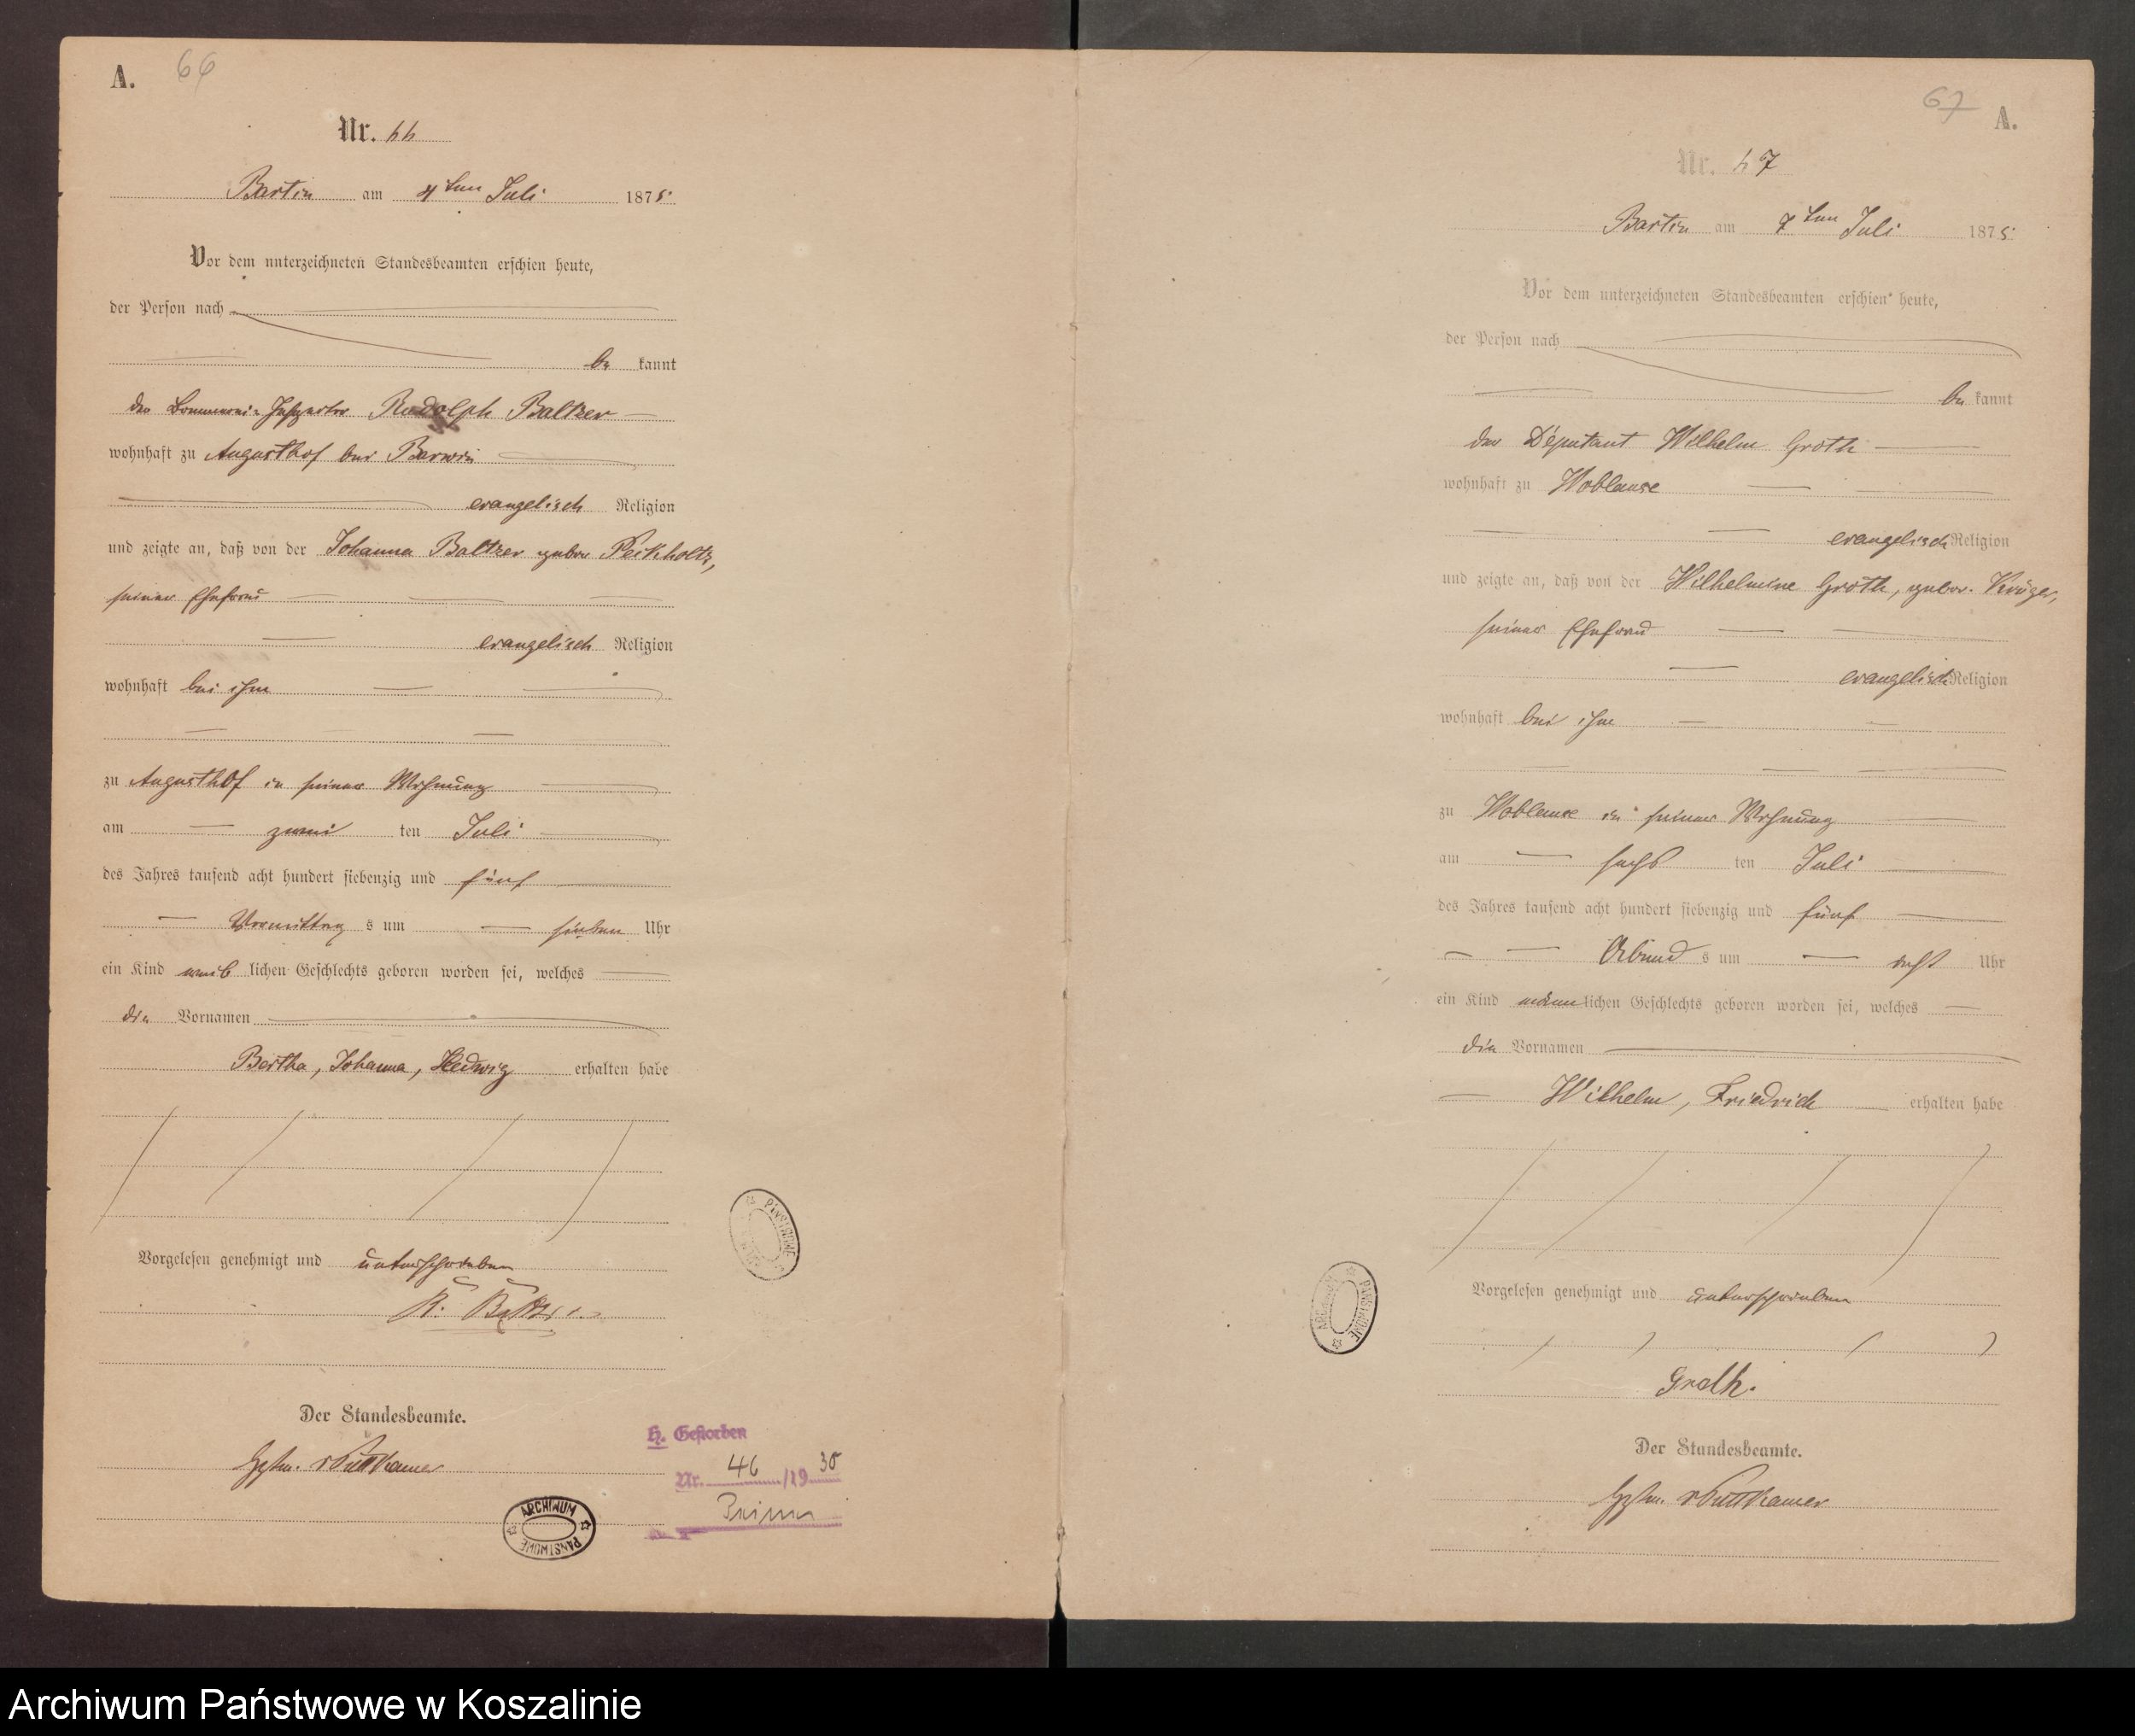 A. 66
Nr. 66
Bartin am 4ten Juli 1875.
Vor dem unterzeichneten Standesbeamten erschien heute,
der Person nach
be kannt
der Inspector Rudolph Baltzer
wohnhaft zu Augusthof bei Barwin
evangelisch Religion
und zeigte an, daß von der Johanna Baltzer gebor
seiner Ehefrau
evangelisch Religion
wohnhaft bei ihm
zu Augusthof in seiner Wohnung
am zwei ten Juli
des Jahres tausend acht hundert siebenzig und fünf
Vormittag s um sieben Uhr
ein Kind weib lichen Geschlechts geboren worden sei, welches
die Vornamen
Bertha, Johanna, Hedwig erhalten habe
Vorgelesen genehmigt und unterschrieben
R. Baltzer
Der Standesbeamte.
vPuttkamer
H. Gestorben
Nr. 46/1930
ARCHIWUM PAŃSTWOWE
PAŃSTWOWE
67 A.
Nr. 67
Bartin am 7ten Juli 1875.
Vor dem unterzeichneten Standesbeamten erschien heute,
der Person nach
be kannt
der Deputant Wilhelm Groth
wohnhaft zu Woblanse
evangelisch Religion
und zeigte an, daß von der Wilhelmine Groth, gebor. Krüger,
seiner Ehefrau
evangelisch Religion
wohnhaft bei ihm
zu Woblanse in seiner Wohnung
am sechs ten Juli
des Jahres tausend acht hundert siebenzig und fünf
Abend s um acht Uhr
ein Kind männ lichen Geschlechts geboren worden sei, welches
die Vornamen
Wilhelm, Friedrich erhalten habe
Vorgelesen genehmigt und unterschrieben
Groth.
Der Standesbeamte.
vPuttkamer
ARCHIWUM PAŃSTWOWE
Archiwum Państwowe w Koszalinie